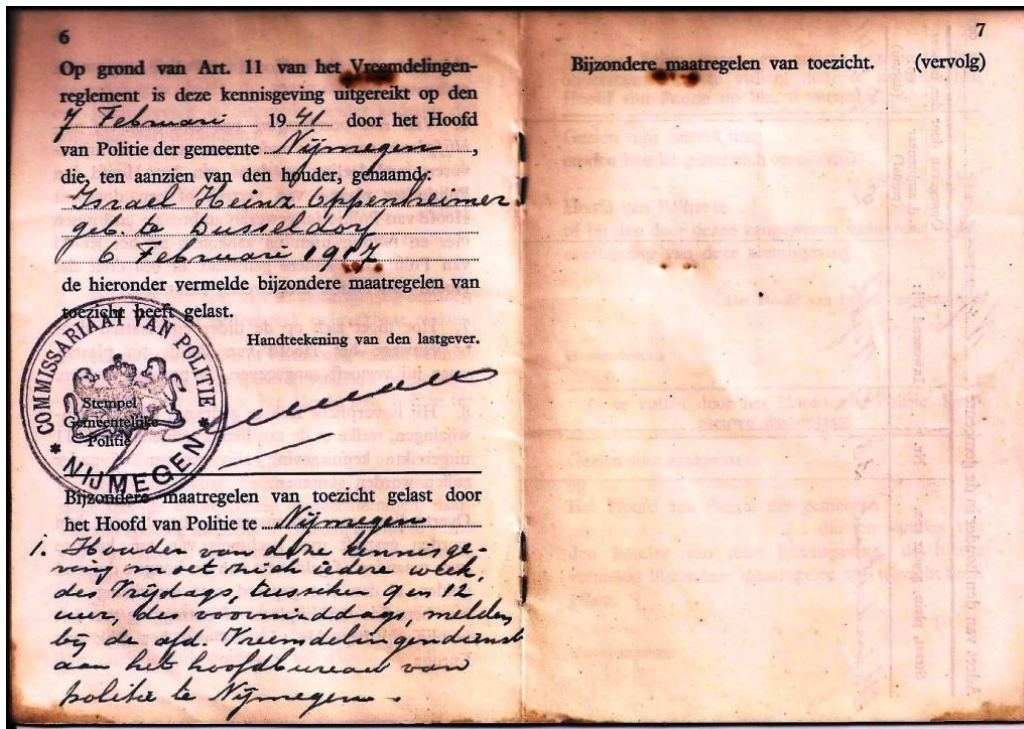 6
Op grond van Art. 11 van het Vreemdelingen-
reglement is deze kennisgeving uitgereikt op den
7 Februari 1941 door het Hoofd
van Politie der gemeente Nijmegen,
die, ten aanzien van den houder, genaamd:
Israel Heinz Oppenheimer
geb. te Dusseldorf
6 Februari 1917
de hieronder vermelde bijzondere maatregelen van
toezicht heeft gelast.
Handteekening van den lastgever.
COMMISSARIAAT VAN POLITIE
* NIJMEGEN *
Stempel
Gemeentelijke
Politie
Bijzondere maatregelen van toezicht gelast door
het Hoofd van Politie te Nijmegen
1. Houder van deze kennisge-
ving moet zich iedere week,
des Vrijdags, tusschen 9 en 12
uur, des voormiddags, melden
bij de afd. Vreemdelingendienst
aan het hoofdbureau van
politie te Nijmegen.
7
Bijzondere maatregelen van toezicht. (vervolg)